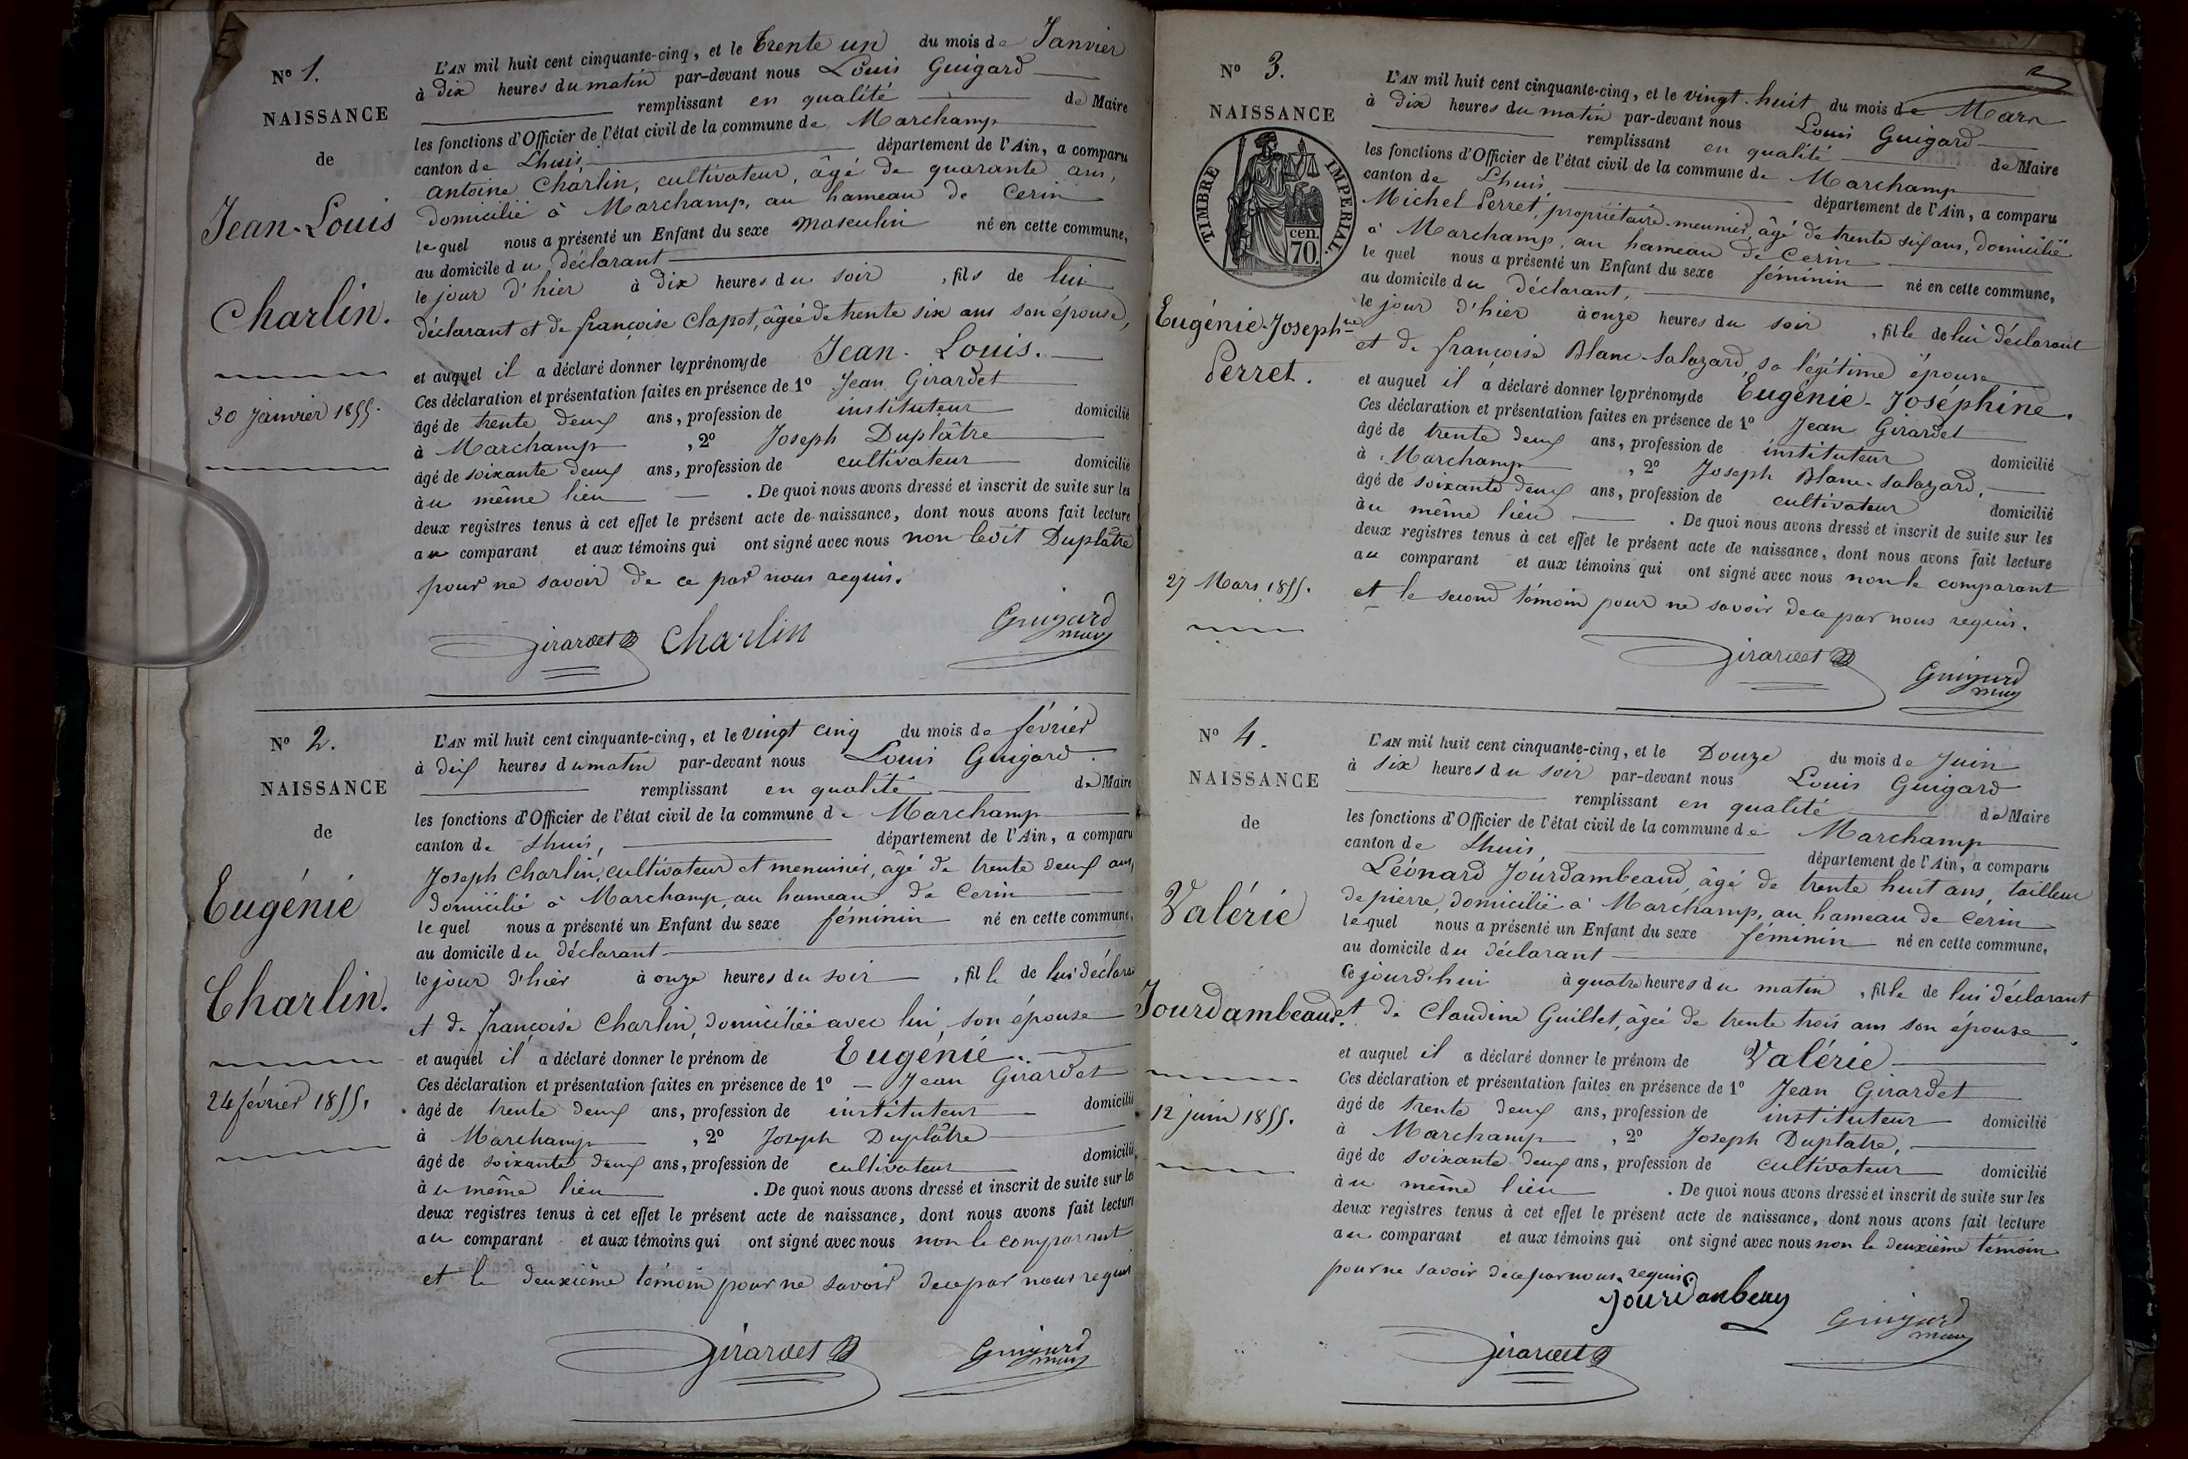 N° 1.
NAISSANCE
de
Jean-Louis
Charlin.
30 janvier 1855.
L'AN mil huit cent cinquante-cinq, et le trente un du mois de Janvier
à dix heures du matin par-devant nous Louis Guigard
remplissant en qualité de Maire
les fonctions d'Officier de l'état civil de la commune de Marchamp
canton de Lhuis département de l'Ain, a comparu
antoine Charlin, cultivateur, âgé de quarante ans,
domicilié à Marchamp, au hameau de Cerin
lequel nous a présenté un Enfant du sexe masculin né en cette commune,
au domicile du déclarant
le jour d'hier à dix heures du soir, fils de lui
déclarant et de françoise Clapot, âgée de trente six ans son épouse,
et auquel il a déclaré donner les prénoms de Jean-Louis.
Ces déclaration et présentation faites en présence de 1° Jean Girardet
âgé de trente deux ans, profession de instituteur domicilié
à Marchamp, 2° Joseph Duplâtre
âgé de soixante deux ans, profession de cultivateur domicilié
au même lieu. De quoi nous avons dressé et inscrit de suite sur les
deux registres tenus à cet effet le présent acte de naissance, dont nous avons fait lecture
au comparant et aux témoins qui ont signé avec nous non ledit Duplâtre
pour ne savoir de ce par nous requis.
Girardet Charlin Guigard
maire
N° 2.
NAISSANCE
de
Eugénie
Charlin.
24 février 1855.
L'AN mil huit cent cinquante-cinq, et le vingt cinq du mois de février
à dix heures du matin par-devant nous Louis Guigard.
remplissant en qualité de Maire
les fonctions d'Officier de l'état civil de la commune de Marchamp
canton de Lhuis, département de l'Ain, a comparu
Joseph Charlin, cultivateur et menuisier, âgé de trente deux ans,
domicilié à Marchamp, au hameau de Cerin
lequel nous a présenté un Enfant du sexe féminin né en cette commune,
au domicile du déclarant
le jour d'hier à onze heures du soir, fille de lui déclara
et de françoise Charlin, domiciliée avec lui, son épouse
et auquel il a déclaré donner le prénom de Eugénie.
Ces déclaration et présentation faites en présence de 1° Jean Girardet
âgé de trente deux ans, profession de instituteur domicilié
à Marchamp, 2° Joseph Duplâtre
âgé de soixante deux ans, profession de cultivateur domicilié
au même lieu. De quoi nous avons dressé et inscrit de suite sur les
deux registres tenus à cet effet le présent acte de naissance, dont nous avons fait lecture
au comparant et aux témoins qui ont signé avec nous non le comparant
et le deuxième témoin pour ne savoir de ce par nous requis
Girardet Guigard
maire
N° 3.
NAISSANCE
TIMBRE IMPERIAL.
70. cen.
Eugénie-Josephne
Perret.
27 Mars 1855.
2
L'AN mil huit cent cinquante-cinq, et le vingt-huit du mois de Mars
à dix heures du matin par-devant nous Louis Guigard
remplissant en qualité de Maire
les fonctions d'Officier de l'état civil de la commune de Marchamp
canton de Lhuis, département de l'Ain, a comparu
Michel Perret, propriétaire-meunier, âgé de trente six ans, domicilié
à Marchamp, au hameau de Cerin
lequel nous a présenté un Enfant du sexe féminin né en cette commune,
au domicile du déclarant,
le jour d'hier à onze heures du soir, fille de lui déclarant
et de françoise Blanc-Salazard, sa légitime épouse
et auquel il a déclaré donner les prénoms de Eugénie-Joséphine.
Ces déclaration et présentation faites en présence de 1° Jean Girardet
âgé de trente deux ans, profession de instituteur domicilié
à Marchamp, 2° Joseph Blanc-Salazard,
âgé de soixante deux ans, profession de cultivateur domicilié
au même lieu. De quoi nous avons dressé et inscrit de suite sur les
deux registres tenus à cet effet le présent acte de naissance, dont nous avons fait lecture
au comparant et aux témoins qui ont signé avec nous non le comparant
et le second témoin pour ne savoir de ce par nous requis.
Girardet Guigard
maire
N° 4.
NAISSANCE
de
Valérie
Jourdambeaud.
12 juin 1855.
L'AN mil huit cent cinquante-cinq, et le Douze du mois de Juin
à six heures du soir par-devant nous Louis Guigard
remplissant en qualité de Maire
les fonctions d'Officier de l'état civil de la commune de Marchamp
canton de Lhuis, département de l'Ain, a comparu
Léonard Jourdambeaud, âgé de trente huit ans, tailleur
de pierre, domicilié à Marchamp, au hameau de Cerin
lequel nous a présenté un Enfant du sexe féminin né en cette commune,
au domicile du déclarant
ce jourd'hui à quatre heures du matin, fille de lui déclarant
et de Claudine Guillet, âgée de trente trois ans son épouse
et auquel il a déclaré donner le prénom de Valérie
Ces déclaration et présentation faites en présence de 1° Jean Girardet
âgé de trente deux ans, profession de instituteur domicilié
à Marchamp, 2° Joseph Duplatre,
âgé de soixante deux ans, profession de cultivateur domicilié
au même lieu. De quoi nous avons dressé et inscrit de suite sur les
deux registres tenus à cet effet le présent acte de naissance, dont nous avons fait lecture
au comparant et aux témoins qui ont signé avec nous non le deuxième témoin
pour ne savoir de ce par nous requis.
Jourdanbeau
Girardet Guigard
maire